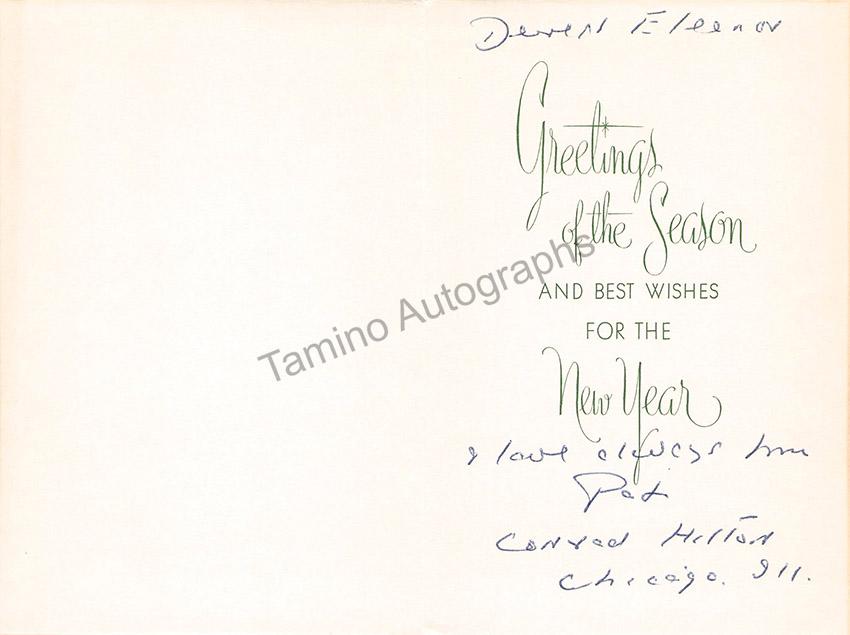 Dearest Eleanor
Greetings
of the Season
AND BEST WISHES
FOR THE
New Year
& love always from
Pat
Conrad Hilton
Chicago. Ill.
Tamino Autographs